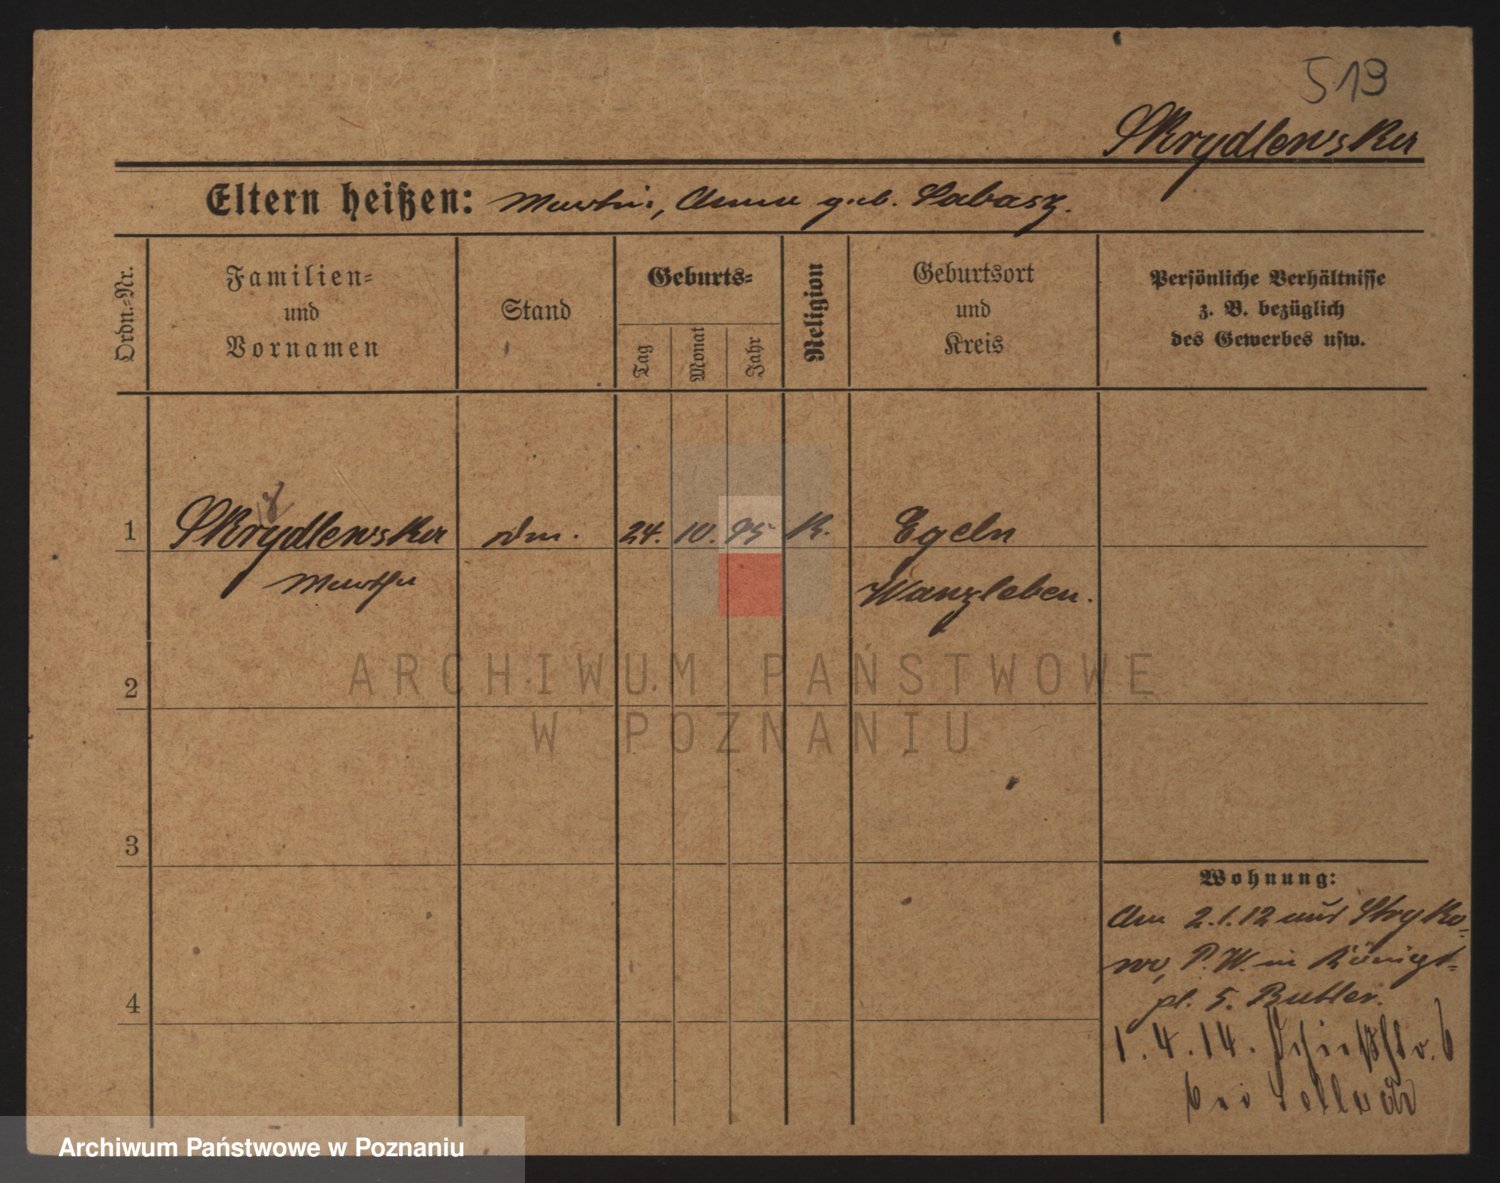 513
Skrydlewska
Eltern heißen: Martin, Anna geb. Labasz.
Ordn.-Nr.
Familien-
und
Vornamen
Stand
Geburts-
Tag
Monat
Jahr
Religion
Geburtsort
und
Kreis
Persönliche Verhältnisse
z. B. bezüglich
des Gewerbes usw.
1 Skrydlewska 24. 10. 95 K. Egeln
Martha Wanzleben.
2
3
4
Wohnung:
Am 2.1.12 aus Stryko-
wo, P. W. in Königs-
pl. 5. Butler.
1.4.14. Schießstr. 6
bei
ARCHIWUM PAŃSTWOWE
W POZNANIU
Archiwum Państwowe w Poznaniu